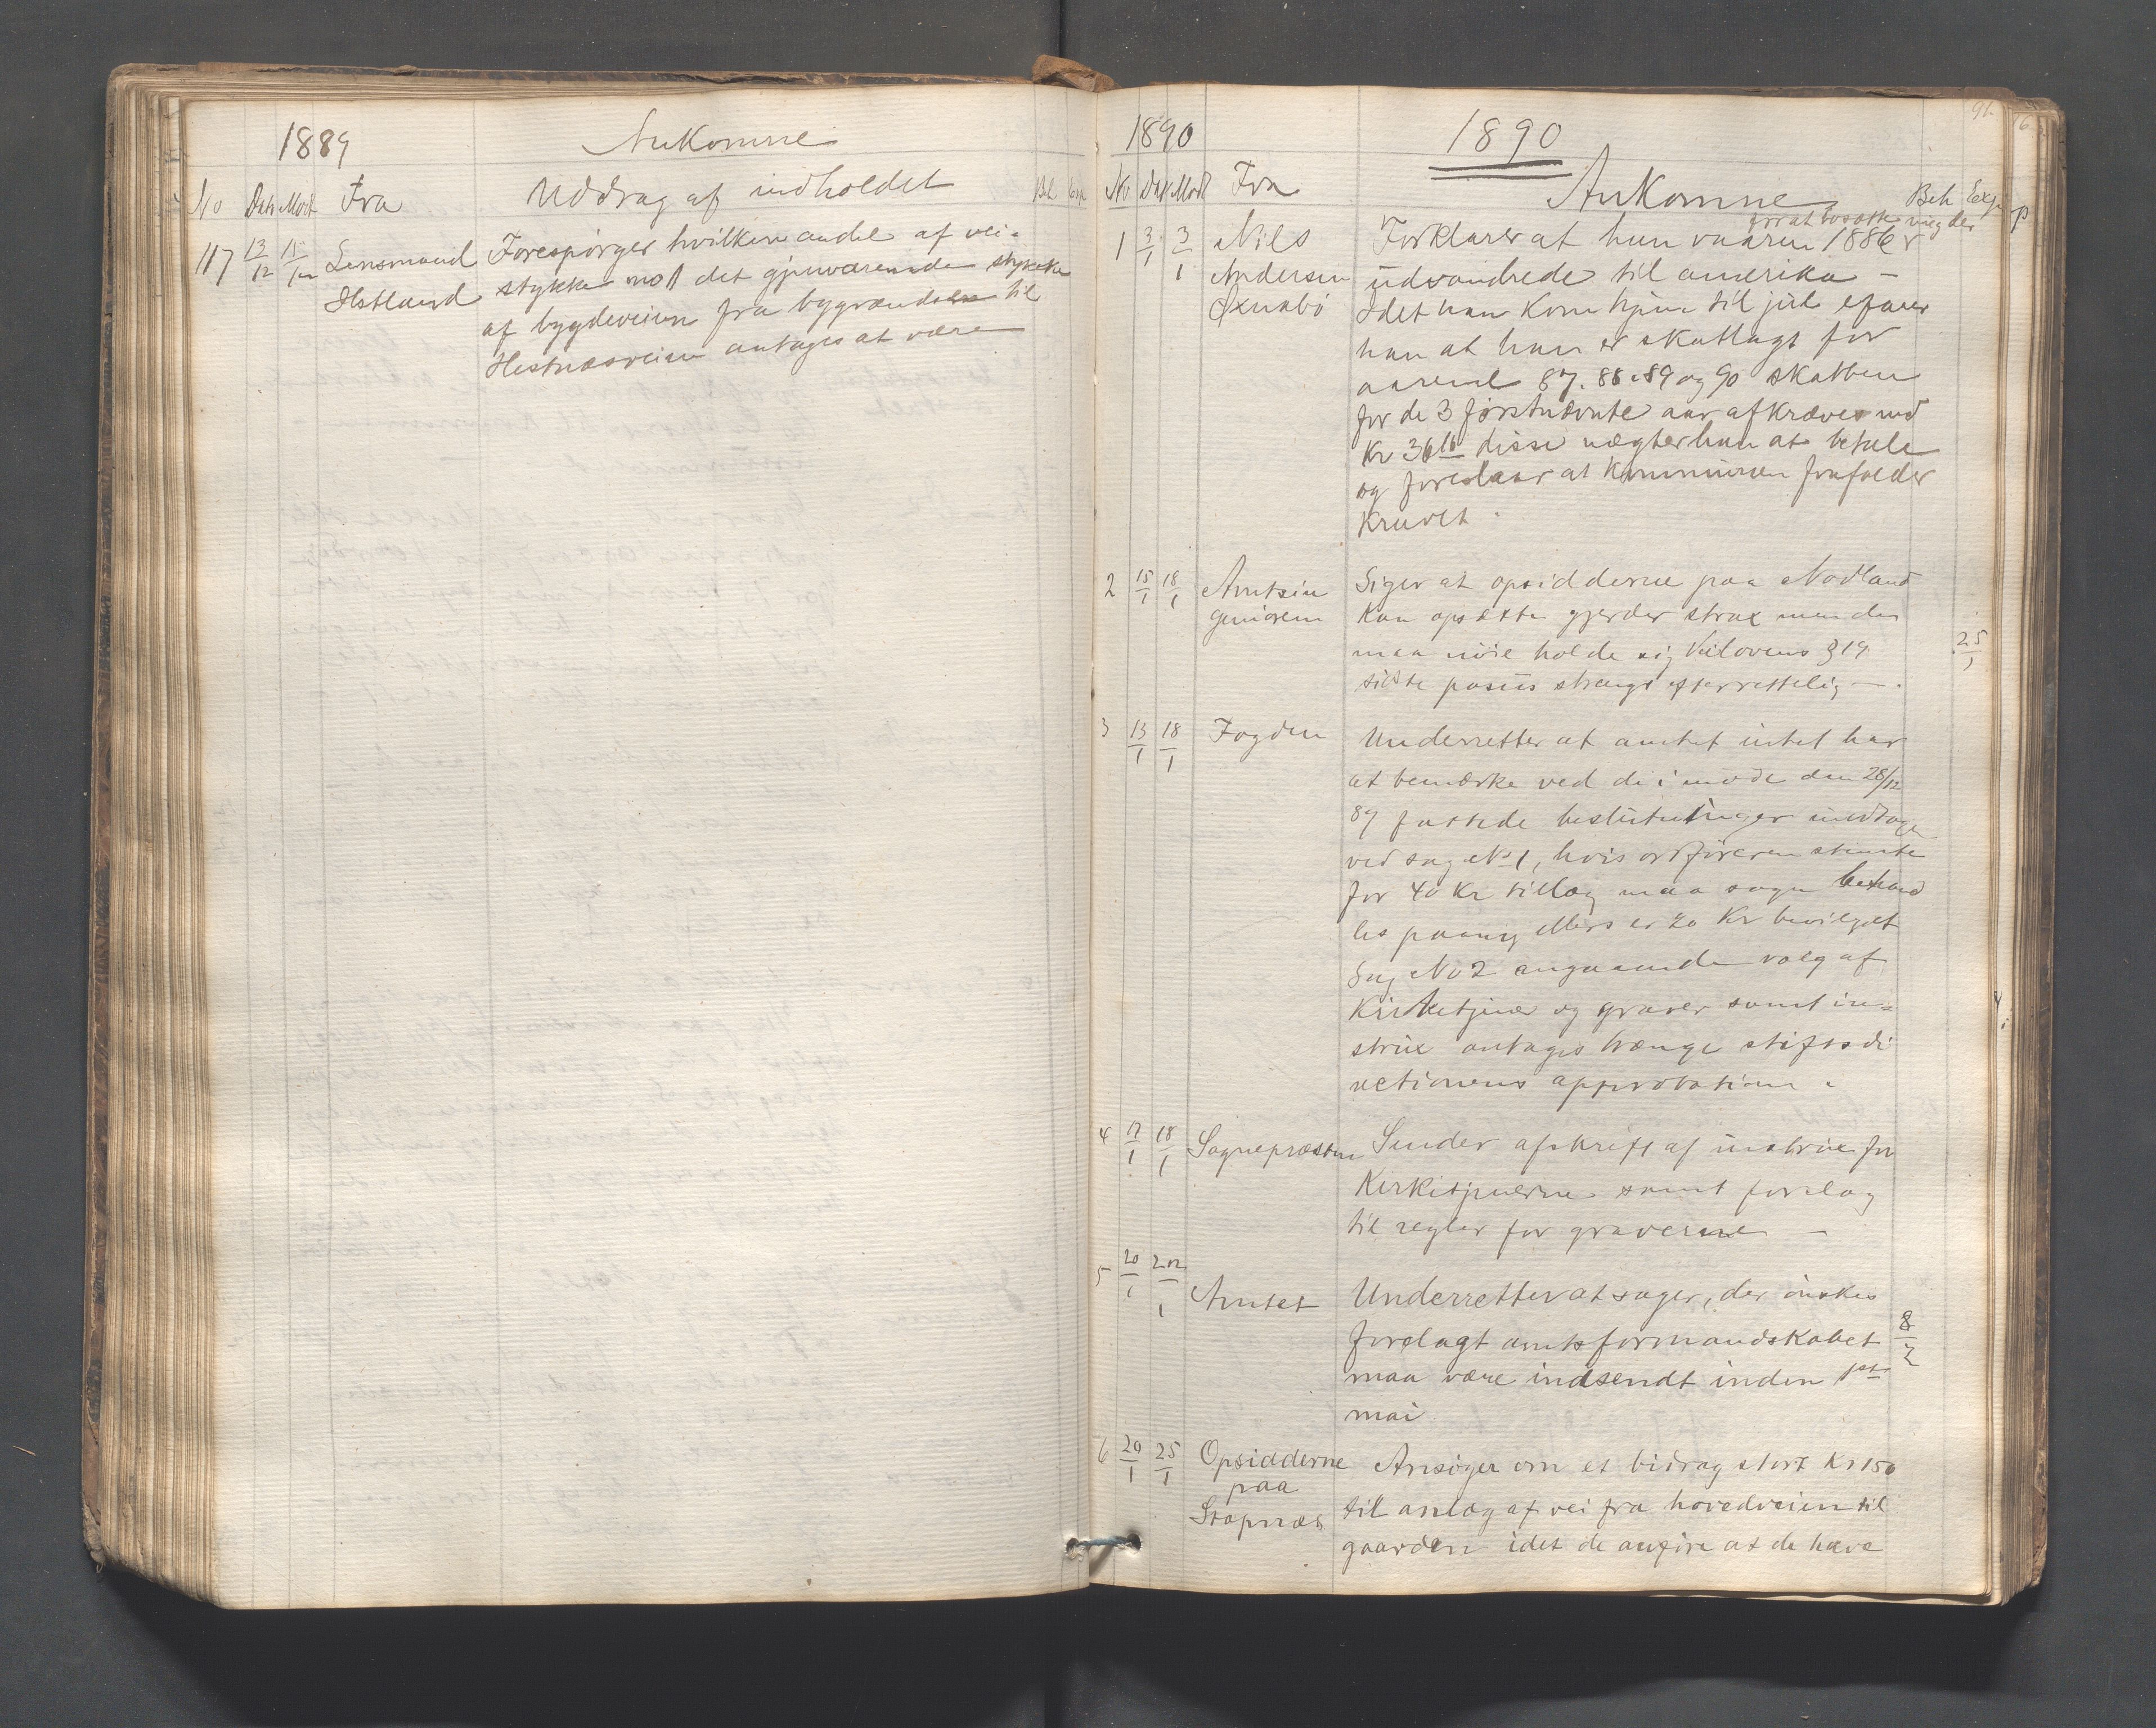 1889
Ankomne
No Dat Modt Fra Uddrag af indholdet Beh Exp
117 13/12 15/12 Lensmand Forespørger hvilken andel af vei-
stykke no 1 det gjenværende stykke
af bygdeveien fra bygrændsen til
Hestnæsveien antages at være
1890
1890
91.
No Dat Modt Fra Ankomne Beh Exp
for at bosætte mig der
1 3/1 3/1 Nils Forklarer at han vaaren 1886
Andersen udvandrede til amerika –
Idet han kom hjem til jul erfarer
han at han er skatlagt for
aarene 87. 88. 89 og 90 skatten
for de 3 førstnævnte aar afkræves med
Kr 36 disse nægter han at betale
og foreslaar at kommunen frafalder
Kravet.
2 15/1 18/1 Amtsin Siger at opsidderne paa Nodland
geniøren Kan opsætte gjerder strax men de
maa nøie holde sig Veilovens § 19
sidste passus strengt efterrettelig —.
25/1
3 13/1 18/1 Fogden Underretter at amtet intet har
at bemærke ved de i møde den 28/12
89 fattede beslutninger undtagen
ved sag No 1, hvis ordføreren stemte
for 40 Kr tillæg maa sagen behand
les paany ellers er 20 Kr bevilget
Sag No 2 angaaende valg af
Kirketjener og graver samt in=
strux antages trænge stiftsdi
rectionens approbation.
4 17/1 18/1 Sognepræsten Sender afskrift af instrux for
Kirketjenerne samt forslag
til regler for graverne –
5 20/1 22/1 Amtet Underretter at sager, der ønskes
forelagt amtsformandskabet 8/2
maa være indsendt inden 1ste
mai.
6 20/1 25/1 Opsidderne Ansøger om et bidrag stort Kr 150
paa
Stapnæs til anlæg af vei fra hovedveien til
gaarden idet de angive at de have